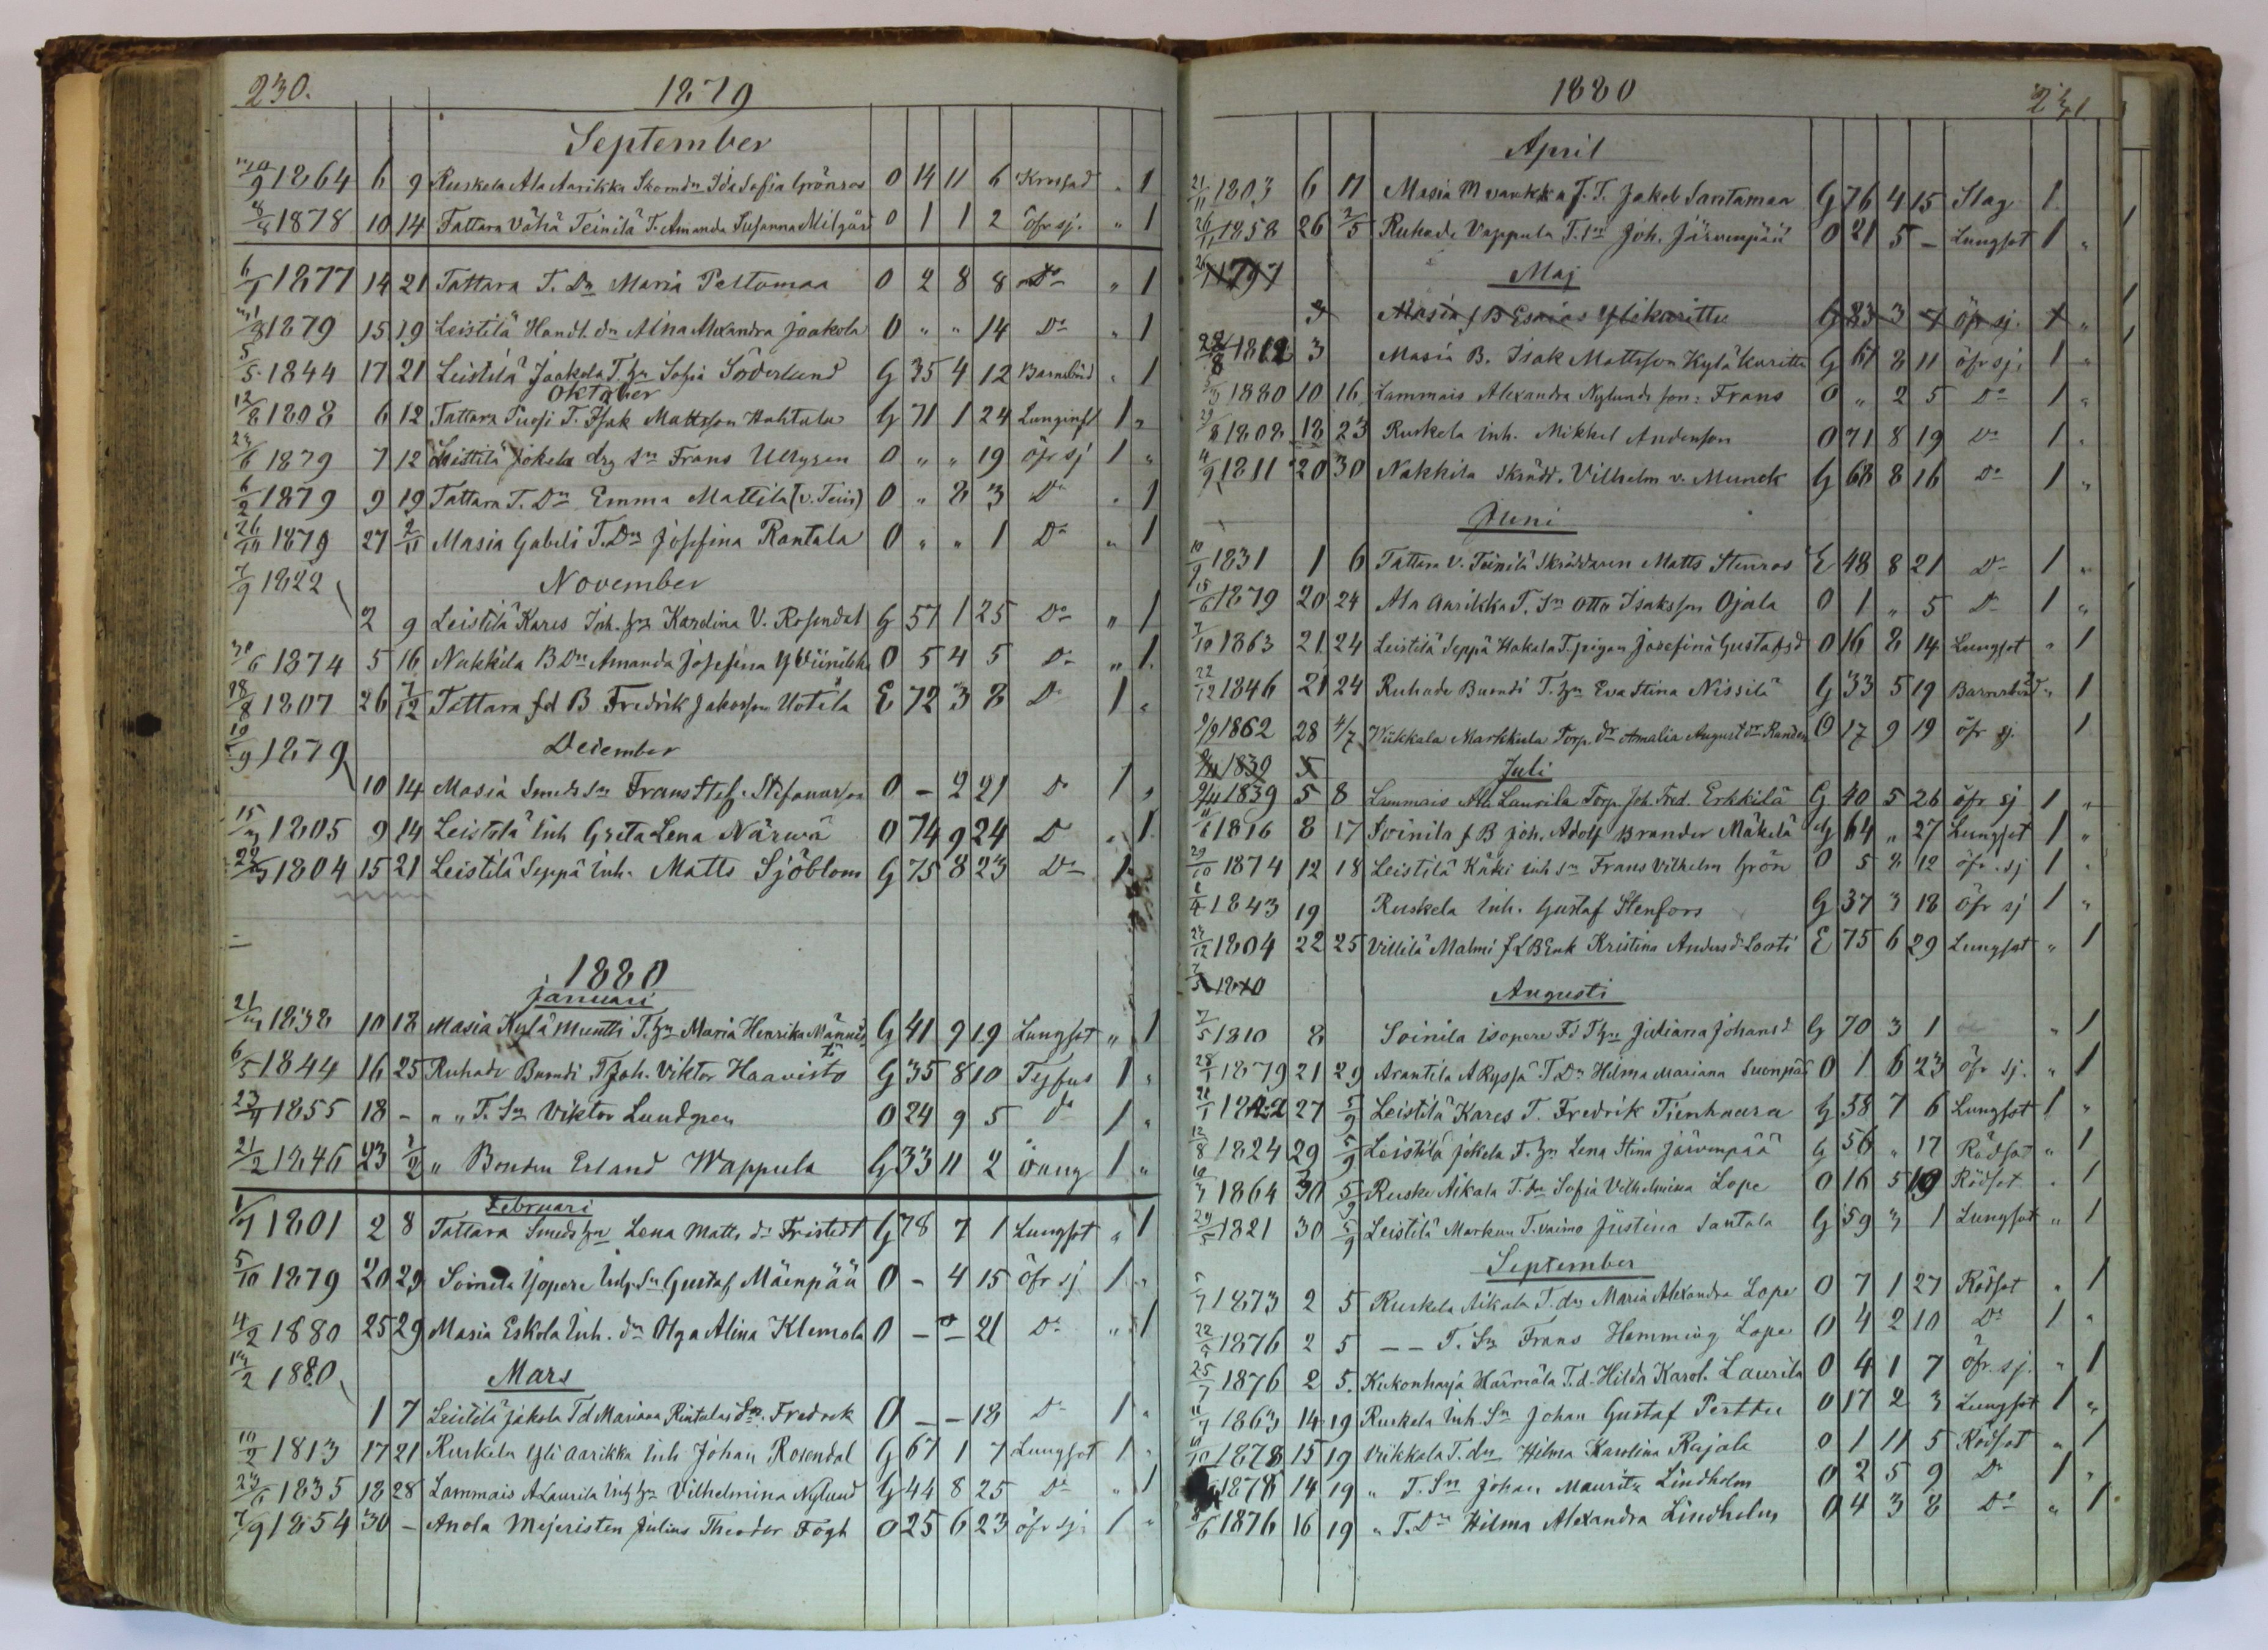 230.
1879
September
9 1864 6 9 Ruskela Ala Aarikka Skomdr Ida Sofia Grönroos 0 14 11 6 " 1
1878 10 14 Tattara Vähä Teinilä T. Amanda Susanna Milgård 0 1 1 2 öfr sj. " 1
6/1 1877 14 21 Tattara T. Dr Maria Peltomaa 0 2 8 8 Do " 1
1879 15 19 Leistilä Handl. dr Alna Alexandra Jaakola 0 " " 14 Do " 1
5/5 1844 17 21 Leistilä Jaakola T. hu Sofia Söderlund G 35 4 12 Barnsbörd " 1
Oktober
12/8 1808 6 12 Tattara T. Isak Mattsson Huhtala G 71 1 24 Lunginfl 1 "
1879 7 12 Leistilä Jokela drg Sn Frans Ullgren 0 " " 19 öfr sj 1 "
6/2 1879 9 19 Tattara T. Dr Emma Mattila (v. Tein) 0 " 8 3 Do " 1
26/10 1879 27 2/11 Masia Gabeli T. Dr Josefina Rantala 0 " " 1 Do " 1
7/9 1822
November
2 9 Leistilä Kares Inh. hu Karolina V. Rosendal G 57 1 25 Do " 1
30/6 1874 5 16 Nakkila B Dr Amanda Josefina 0 5 4 5 Do " 1
18/8 1807 26 7/12 Tattara fd B Fredrik Jakosson Uotila E 72 3 8 Do 1 "
19/9 1879
December
10 14 Masia Smeds Sn Frans Stef. Stefansson 0 - 2 21 Do 1 "
15/ 1805 9 14 Leistilä Inh Greta Lena Närvä 0 74 9 24 D " 1
1804 15 21 Leistilä Seppä Inh. Matts Sjöblom G 75 8 23 Do 1 "
1880
Januari
21/ 1838 10 18 Masia Kylä Muntti T. hu Maria Henrika G 41 9 19 Lungsot " 1
6/5 1844 16 25 Ruhade Buendi T Joh. Viktor Haavisto G 35 8 10 Tyfus 1 "
23/ 1855 18 - " " T. Sn Viktor Lundgren 0 24 9 5 do 1 "
21/2 1846 23 1/2 " Bonden Erland Wappula G 33 11 2 1 "
Februari
1/7 1801 2 8 Tattara Smeds hu Lena Matts dr Fristedt G 78 7 1 Lungsot " 1
5/10 1879 20 29 Soinila Isopere Inh. Sn Gustaf Mäenpää 0 - 4 15 öfr sj 1 "
4/2 1880 25 29 Masia Eskola Inh. dr Olga Alina Klemola 0 - - 21 Do " 1
/2 1880
Mars
1 7 Leistilä Jokela Td Mariana Rintalas Sn. Fredrik 0 - - 18 Do 1 "
10/2 1813 17 21 Ruskela Yli Aarikka Inh Johan Rosendal G 67 1 7 Lungsot 1 "
1835 18 28 Lammais A Laurila Inh hu Vilhelmina Nylund G 44 8 25 Do " 1
7/9 1854 30 - Anola Mejeristen Julius Theodor Fogh 0 25 6 23 öfr sj. 1 "
1880
231
April
21/11 1803 6 11 Masia f. T. Jakob Santamaa G 76 4 15 Slag 1
26/11 1858 26 2/5 Ruhade Vappula T. Sn Joh. Järvenpää 0 21 5 - Lungsot 1 "
1797
Maj
3 Masia f B Esaias Ylikaritta G 83 3 7 öfr sj. 1 "
22/8 1812 3 Masia B. Isak Mattsson Kyläkaritta G 67 8 11 öfr sj. 1 "
1880 10 16 Lammais Alexandra Nylunds son: Frans 0 " 2 5 Do 1 "
29/8 1808 18 23 Ruskela inh. Mikkel Andersson 0 71 8 19 Do 1 "
4/9 1811 20 30 Nakkila Skrädd. Vilhelm v. Munck G 68 8 16 Do 1 "
Juni
10/9 1831 1 6 Tattara V. Teinilä Skräddaren Matts Stenroos E 48 8 21 Do 1 "
15/6 1879 20 24 Ala Aarikka T. Sn Otto Isaksson Ojala 0 1 " 5 Do 1 "
7/10 1863 21 24 Leistilä Seppä Hakala T. pigan Josefina Gustafsd 0 16 8 14 Lungsot " 1
22/12 1846 21 24 Ruhade Buendi T. hu Eva Stina Nissilä G 33 5 19 Barnsbörd " 1
9/9 1862 28 4/7 Viikkala Markkula Torp. dr Amalia August dr 0 17 9 19 öfr sj. 1
1839 5
Juli
9/ 1839 5 8 Lammais Ala Laurila Torp. Joh. Fred. Erkkilä G 40 5 26 öfr sj 1 "
1816 8 17 Soinila f B Joh. Adolf Brander Mäkelä G 64 " 27 Lungsot 1 "
29/10 1874 12 18 Leistilä Käki inh Sn Frans Vilhelm Grön 0 5 8 12 öfr. sj 1 "
/4 1843 19 Ruskela Inh. Gustaf Stenfors G 37 3 18 öfr sj 1 "
/12 1804 22 25 Villilä Malmi Kristina Anders d. Laati E 75 6 29 Lungsot " 1
7/5 1810
Augusti
7/5 1810 8 Soinila isopere Fd T hu Juliana Johansd G 70 3 1 " 1
28/1 1879 21 29 Arantila A Ryssä T. Dr Hilma Mariana 0 1 6 23 öfr sj. " 1
1822 27 5/9 Leistilä Kares T. Fredrik Tienhaara G 58 7 6 Lungsot 1 "
12/8 1824 29 5/9 Leistilä Jokela T. hu Lena Stina Järvenpää G 56 " 17 Rödsot " 1
1864 30 5/9 Ruske Aikala T. dr Sofia Vilhelmina Lope 0 16 5 19 Rödsot " 1
29/5 1821 30 5/9 Leistilä Markun T. Justina Santala G 59 3 1 Lungsot " 1
September
5/7 1873 2 5 Ruskela Aikala T. dr Maria Alexandra Lope 0 7 1 27 Rödsot " 1
22/ 1876 2 5 - - T. Sn Frans Hemming Lope 0 4 2 10 Do 1 "
25/7 1876 2 5. Kukonharja Härmälä T. d. Hilda Karol. Laurila 0 4 1 7 öfr. sj. " 1
11/7 1863 14 19 Ruskela Inh. Sn Johan Gustaf Perttu 0 17 2 3 Lungsot 1 "
/10 1878 15 19 Viikkala T. dr Hilma Karolina Rajala 0 1 11 5 Rödsot " 1
1878 14 19 " T. Sn Johan Mauritz Lindholm 0 2 5 9 Do 1 "
8/6 1876 16 19 " T. Dr Hilma Alexandra Lindholm 0 4 3 8 Do " 1